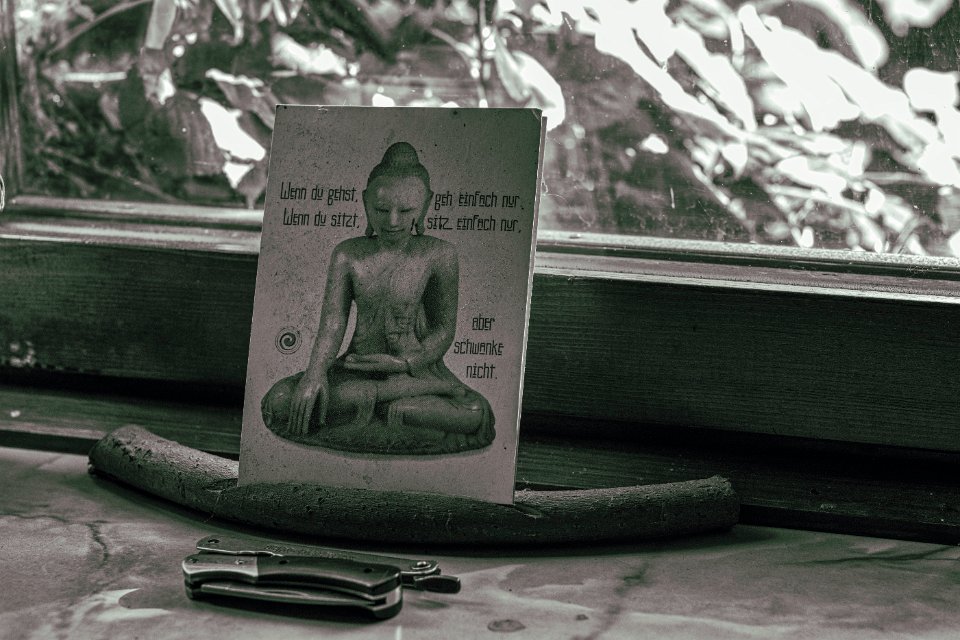 Wenn du gehst, geh einfach nur,
Wenn du sitzt, sitz einfach nur,
aber
schwanke
nicht.